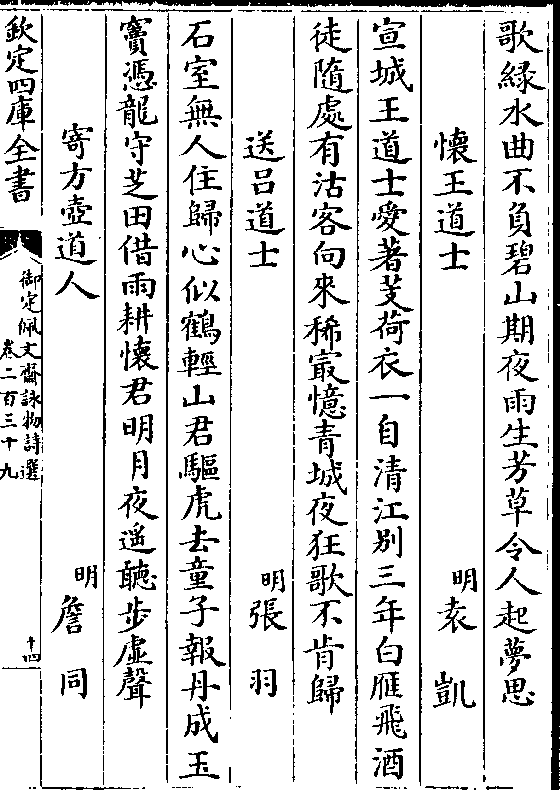 歌緑水曲不負碧山期夜雨生芳草令人起夢思
懷王道士　明袁凱
宣城王道士愛著芰荷衣一自清江别三年白雁飛酒
徒隨處有沽客向來稀㝡憶青城夜狂歌不肯歸
送吕道士　明張羽
石室無人住歸心似鶴輕山君驅虎去童子報丹成玉
竇憑龍守芝田借雨耕懷君明月夜遥聽步虚聲
寄方壺道人　明詹同
欽定四庫全書
御定佩文齋詠物詩選
卷二百三十九
十四